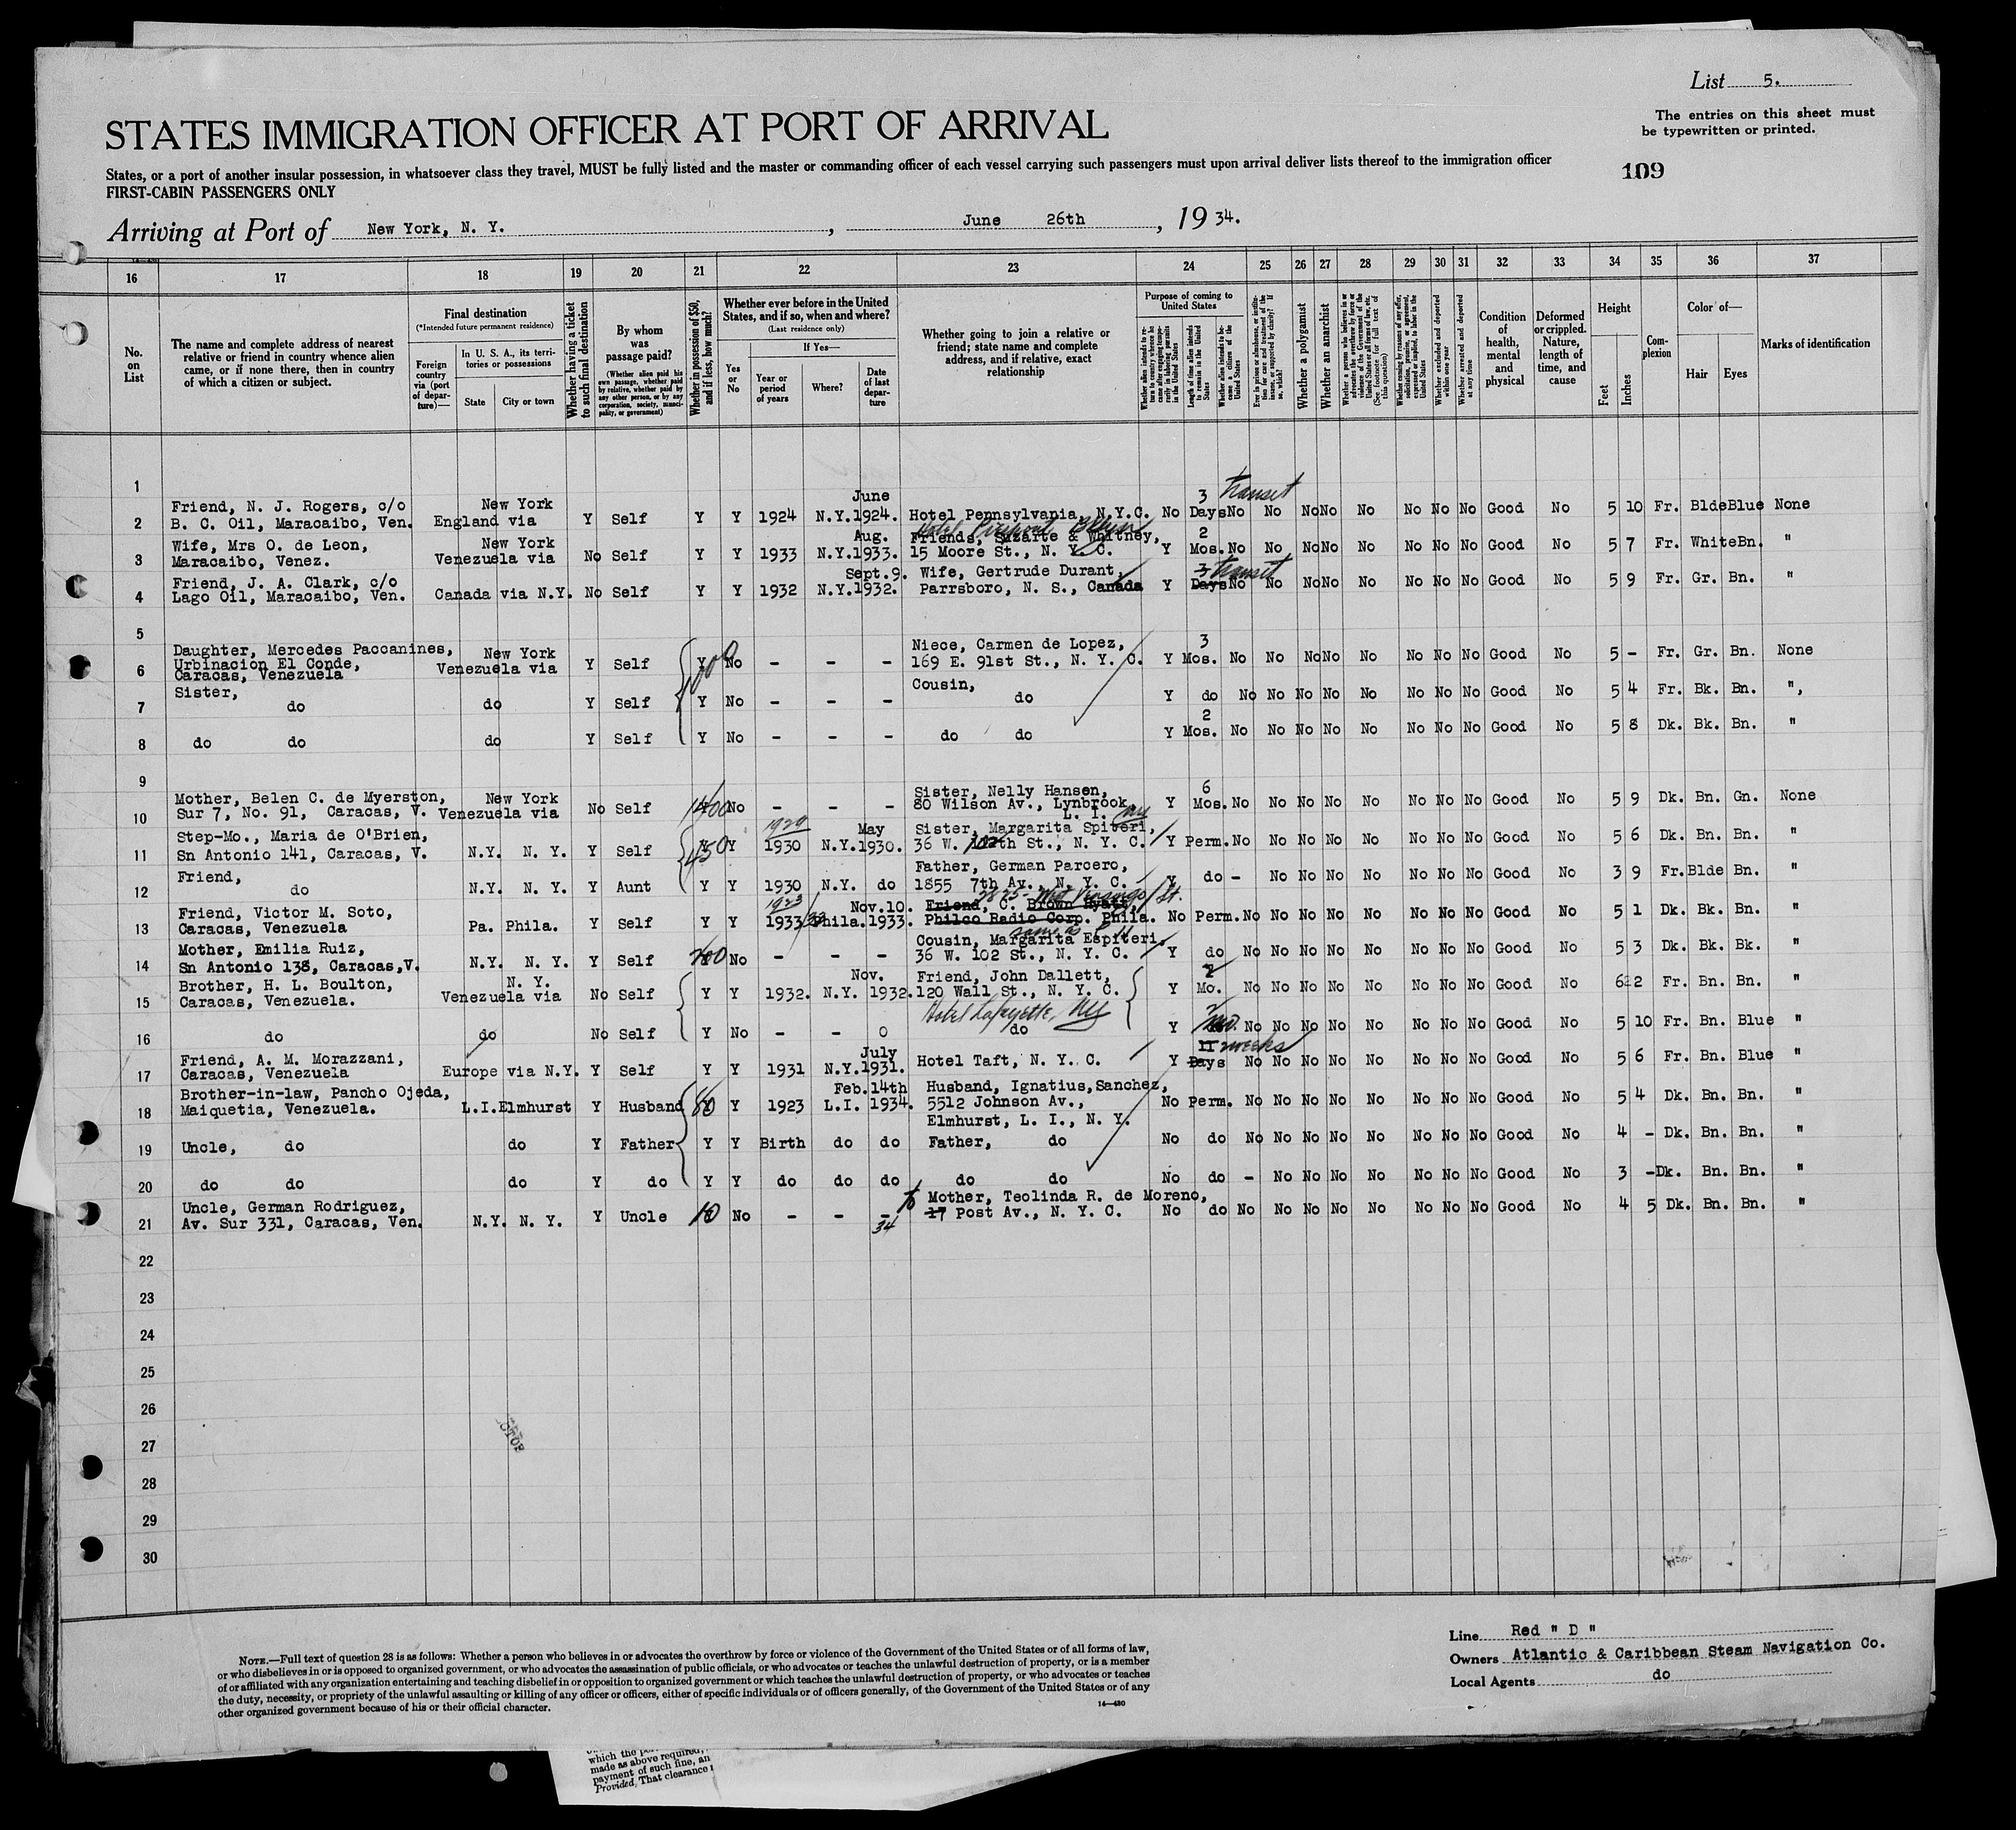 List 5.
The entries on this sheet must
be typewritten or printed.
STATES IMMIGRATION OFFICER AT PORT OF ARRIVAL
States, or a port of another insular possession, in whatsoever class they travel, MUST be fully listed and the master or commanding officer of each vessel carrying such passengers must upon arrival deliver lists thereof to the immigration officer
FIRST-CABIN PASSENGERS ONLY
109
Arriving at Port of New York, N. Y. , June 26th , 19 34.
16 17 18 19 20 21 22 23 24 25 26 27 28 29 30 31 32 33 34 35 36 37
No. on List
The name and complete address of nearest relative or friend in country whence alien came, or if none there, then in country of which a citizen or subject.
Final destination
(*Intended future permanent residence)
Foreign country via (port of departure)—
In U. S. A., its territories or possessions
State City or town
Whether having a ticket to such final destination
By whom was passage paid?
(Whether alien paid his own passage, whether paid by relative, whether paid by any other person, or by any corporation, society, municipality, or government)
Whether in possession of $50, and if less, how much?
Whether ever before in the United States, and if so, when and where?
(Last residence only)
Yes or No
If Yes—
Year or period of years
Where?
Date of last departure
Whether going to join a relative or friend; state name and complete address, and if relative, exact relationship
Purpose of coming to United States
Length of time alien intends to remain in the United States
Whether alien intends to become a citizen of the United States
Whether a polygamist
Whether an anarchist
Whether excluded and deported within one year
Whether arrested and deported at any time
Condition of health, mental and physical
Deformed or crippled. Nature, length of time, and cause
Height
Feet Inches
Complexion
Color of—
Hair Eyes
Marks of identification
1
June 3 transit
Friend, N. J. Rogers, c/o New York
2 B. C. Oil, Maracaibo, Ven. England via Y Self Y Y 1924 N.Y. 1924. Hotel Pennsylvania, N.Y.C. No Days No No No No No No No No Good No 5 10 Fr. Blde Blue None
Wife, Mrs O. de Leon, New York Aug. Friends, Suzarte & Whitney, 2
3 Maracaibo, Venez. Venezuela via No Self Y Y 1933 N.Y. 1933. 15 Moore St., N. Y. C. Y Mos. No No No No No No No No Good No 5 7 Fr. White Bn. "
Friend, J. A. Clark, c/o Sept. 9. Wife, Gertrude Durant, 3 transit
4 Lago Oil, Maracaibo, Ven. Canada via N.Y. No Self Y Y 1932 N.Y. 1932. Parrsboro, N. S., Canada Y Days No No No No No No No No Good No 5 9 Fr. Gr. Bn. "
5
Daughter, Mercedes Paccanines, New York Niece, Carmen de Lopez, 3
6 Urbinacion El Conde, Venezuela via Y Self Y No - - - 169 E. 91st St., N. Y. C. Y Mos. No No No No No No No No Good No 5 - Fr. Gr. Bn. None
Caracas, Venezuela
Sister, Cousin,
7 do do Y Self Y No - - - do Y do No No No No No No No No Good No 5 4 Fr. Bk. Bn. ",
2
8 do do do Y Self Y No - - - do do Y Mos. No No No No No No No No Good No 5 8 Dk. Bk. Bn. "
9
Mother, Belen C. de Myerston, New York Sister, Nelly Hansen, 6
10 Sur 7, No. 91, Caracas, V. Venezuela via No Self 1400 No - - - 80 Wilson Av., Lynbrook, Y Mos. No No No No No No No No Good No 5 9 Dk. Bn. Gn. None
L. I. NY
Step-Mo., Maria de O'Brien, 1920 May Sister, Margarita Spiteri,
11 Sn Antonio 141, Caracas, V. N.Y. N. Y. Y Self 450 Y 1930 N.Y. 1930. 36 W. 102th St., N. Y. C. Y Perm. No No No No No No No No Good No 5 6 Dk. Bn. Bn. "
Friend, Father, German Parcero,
12 do N.Y. N. Y. Y Aunt Y Y 1930 N.Y. do 1855 7th Av., N. Y. C. Y do - No No No No No No No Good No 3 9 Fr. Blde Bn. "
Friend, Victor M. Soto, 1923 Nov. 10. Friend, C. Brown Hyatt,
13 Caracas, Venezuela Pa. Phila. Y Self Y Y 1933 Phila. 1933. Philco Radio Corp. Phila. No Perm. No No No No No No No No Good No 5 1 Dk. Bk. Bn. "
Mother, Emilia Ruiz, same as Cousin, Margarita Espiteri,
14 Sn Antonio 138, Caracas, V. N.Y. N. Y. Y Self No - - - 36 W. 102 St., N. Y. C. Y do No No No No No No No No Good No 5 3 Dk. Bk. Bk. "
Brother, H. L. Boulton, N. Y. Nov. Friend, John Dallett, 2
15 Caracas, Venezuela. Venezuela via No Self Y Y 1932. N.Y. 1932. 120 Wall St., N. Y. C. Y Mo. No No No No No No No No Good No 6 2 Fr. Bn. Bn. "
Hotel Lafayette, NY
16 do do No Self Y No - - 0 do Y mo. No No No No No No No No Good No 5 10 Fr. Bn. Blue "
Friend, A. M. Morazzani, July 11 2 weeks
17 Caracas, Venezuela Europe via N.Y. Y Self Y Y 1931 N.Y. 1931. Hotel Taft, N. Y. C. Y Days No No No No No No No No Good No 5 6 Fr. Bn. Blue "
Brother-in-law, Pancho Ojeda, Feb. 14th Husband, Ignatius, Sanchez,
18 Maiquetia, Venezuela. L.I. Elmhurst Y Husband 80 Y 1923 L.I. 1934. 5512 Johnson Av., No Perm. No No No No No No No No Good No 5 4 Dk. Bn. Bn. "
Elmhurst, L. I., N. Y.
19 Uncle, do do Y Father Y Y Birth do do Father, do No do No No No No No No No No Good No 4 - Dk. Bn. Bn. "
20 do do do Y do Y Y do do do do do No do - No No No No No No No Good No 3 - Dk. Bn. Bn. "
Uncle, German Rodriguez, Mother, Teolinda R. de Moreno,
21 Av. Sur 331, Caracas, Ven. N.Y. N. Y. Y Uncle 10 No - - - 17 Post Av., N. Y. C. No do No No No No No No No No Good No 4 5 Dk. Bn. Bn. "
34
22
23
24
25
26
27
28
29
30
NOTE.—Full text of question 28 is as follows: Whether a person who believes in or advocates the overthrow by force or violence of the Government of the United States or of all forms of law,
or who disbelieves in or is opposed to organized government, or who advocates the assassination of public officials, or who advocates or teaches the unlawful destruction of property, or is a member
of or affiliated with any organization entertaining and teaching disbelief in or opposition to organized government or which teaches the unlawful destruction of property, or who advocates or teaches
the duty, necessity, or propriety of the unlawful assaulting or killing of any officer or officers, either of specific individuals or of officers generally, of the Government of the United States or of any
other organized government because of his or their official character.
14—430
Line Red " D "
Owners Atlantic & Caribbean Steam Navigation Co.
Local Agents do
which the
made as above required,
payment of such fine, an
Provided, That clearance